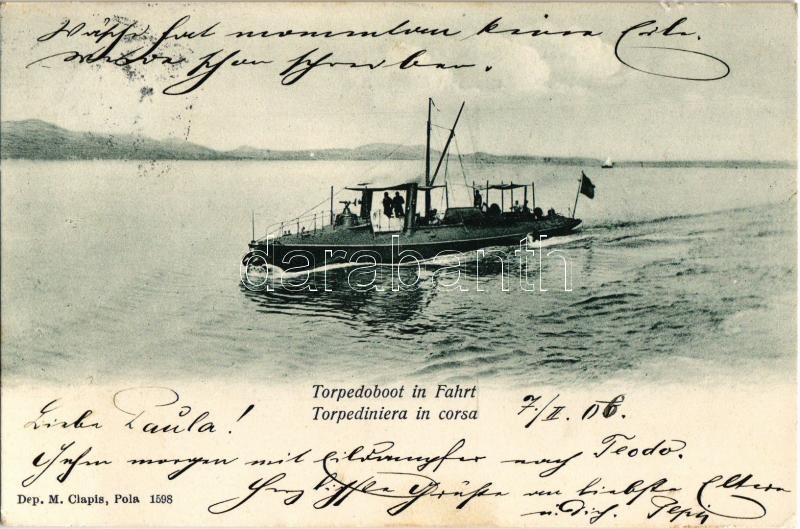 Wäsche hat momentan keine Eile.
werde schon schreiben.
darabanth
Torpedoboot in Fahrt
Torpediniera in corsa
7/II. 06.
Liebe Paula!
morgen mit Eildampfer nach Teodo.
Herzlichste Grüße an liebste Eltern
u. Dich. Pepi
Dep. M. Clapis, Pola 1598